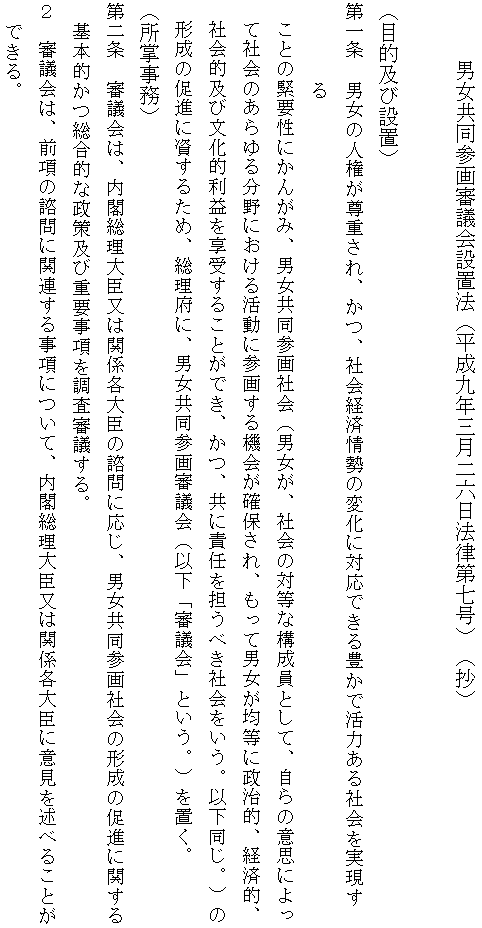 男女共同参画審議会設置法（平成九年三月二六日法律第七号）（抄）
（目的及び設置）
第一条　男女の人権が尊重され、かつ、社会経済情勢の変化に対応できる豊かで活力ある社会を実現す
る
ことの緊要性にかんがみ、男女共同参画社会（男女が、社会の対等な構成員として、自らの意思によっ
て社会のあらゆる分野における活動に参画する機会が確保され、もって男女が均等に政治的、経済的、
社会的及び文化的利益を享受することができ、かつ、共に責任を担うべき社会をいう。以下同じ。）の
形成の促進に資するため、総理府に、男女共同参画審議会（以下「審議会」という。）を置く。
（所掌事務）
第二条　審議会は、内閣総理大臣又は関係各大臣の諮問に応じ、男女共同参画社会の形成の促進に関する
基本的かつ総合的な政策及び重要事項を調査審議する。
２　審議会は、前項の諮問に関連する事項について、内閣総理大臣又は関係各大臣に意見を述べることが
できる。